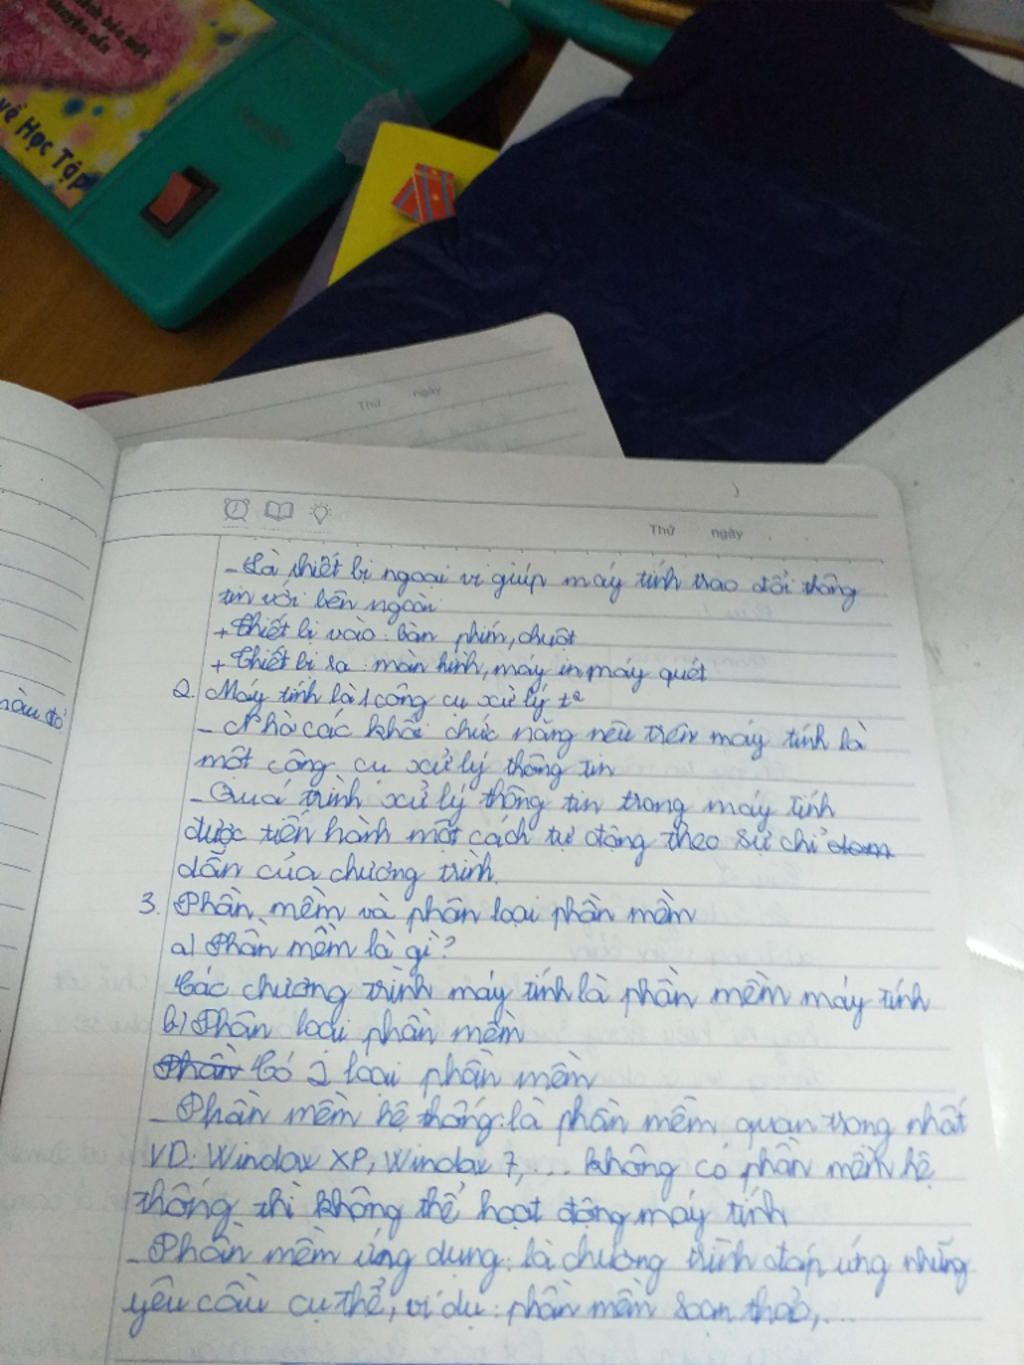 về Học Tập
Thứ ngày
Thứ ngày
- Là thiết bị ngoại vi giúp máy tính trao đổi thông
tin với bên ngoài
+ Thiết bị vào: bàn phím, chuột
+ Thiết bị ra: màn hình, máy in, máy quét
2. Máy tính là 1 công cụ xử lý t²
màu đỏ
- Nhờ các khối chức năng nêu trên máy tính là
một công cụ xử lý thông tin
- Quá trình xử lý thông tin trong máy tính
được tiến hành một cách tự động theo sự chỉ
dẫn của chương trình.
3. Phần mềm và phân loại phần mềm
a) Phần mềm là gì?
Các chương trình máy tính là phần mềm máy tính
b) Phân loại phần mềm
Phần Có 2 loại phần mềm
- Phần mềm hệ thống: là phần mềm quan trọng nhất
VD: Window XP, Window 7,... không có phần mềm hệ
thống thì không thể hoạt động máy tính
- Phần mềm ứng dụng: là chương trình đáp ứng những
yêu cầu cụ thể, ví dụ: phần mềm soạn thảo,...